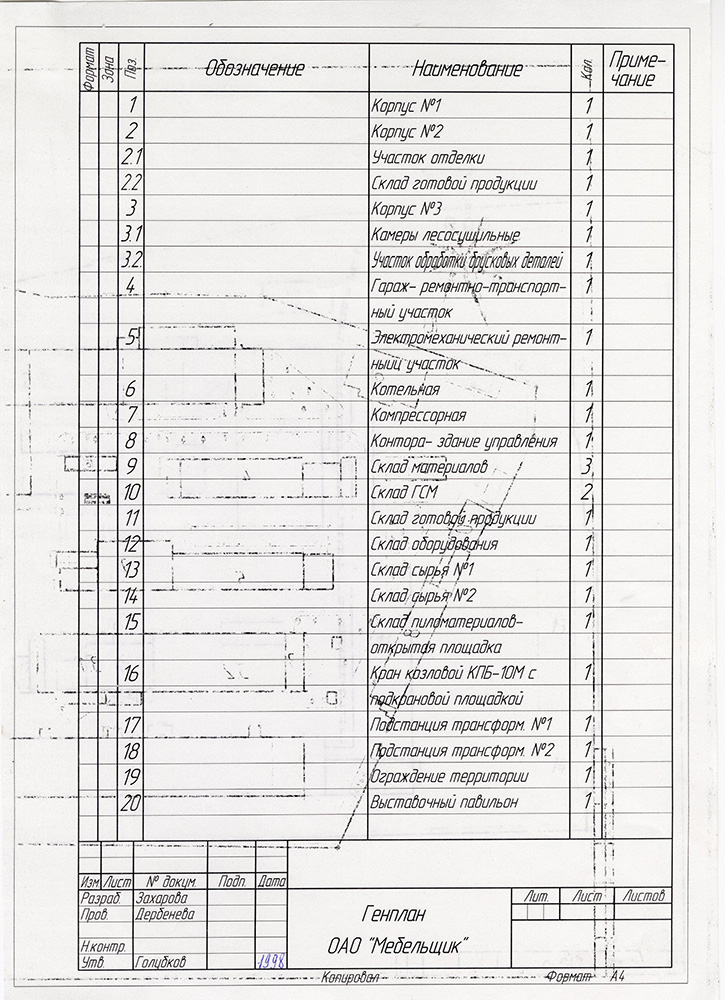 Формат Зона Поз. Обозначение Наименование Кол. Приме-
чание
1 Корпус №1 1
2 Корпус №2 1
2.1 Участок отделки 1
2.2 Склад готовой продукции 1
3 Корпус №3 1
3.1 Камеры лесосушильные 1
3.2. Участок обработки брусковых деталей 1
4 Гараж- ремонтно-транспорт- 1
ный участок
5 Электромеханический ремонт- 1
ныйц участок
6 Котельная 1
7 Компрессорная 1
8 Контора- здание управления 1
9 Склад материалов 3
10 Склад ГСМ 2
11 Склад готовой продукции 1
12 Склад оборудования 1
13 Склад сырья №1 1
14 Склад сырья №2 1
15 Склад пиломатериалов- 1
открытая площадка
16 Кран козловой КПБ-10М с 1
подкрановой площадкой
17 Подстанция трансформ. №1 1
18 Подстанция трансформ. №2 1
19 Ограждение территории 1
20 Выставочный павильон 1
Изм. Лист № докум. Подп. Дата
Разраб. Захарова
Пров. Дербенева
Н.контр.
Утв. Голубков 1998
Генплан
ОАО "Мебельщик"
Лит. Лист Листов
Копировал Формат А4